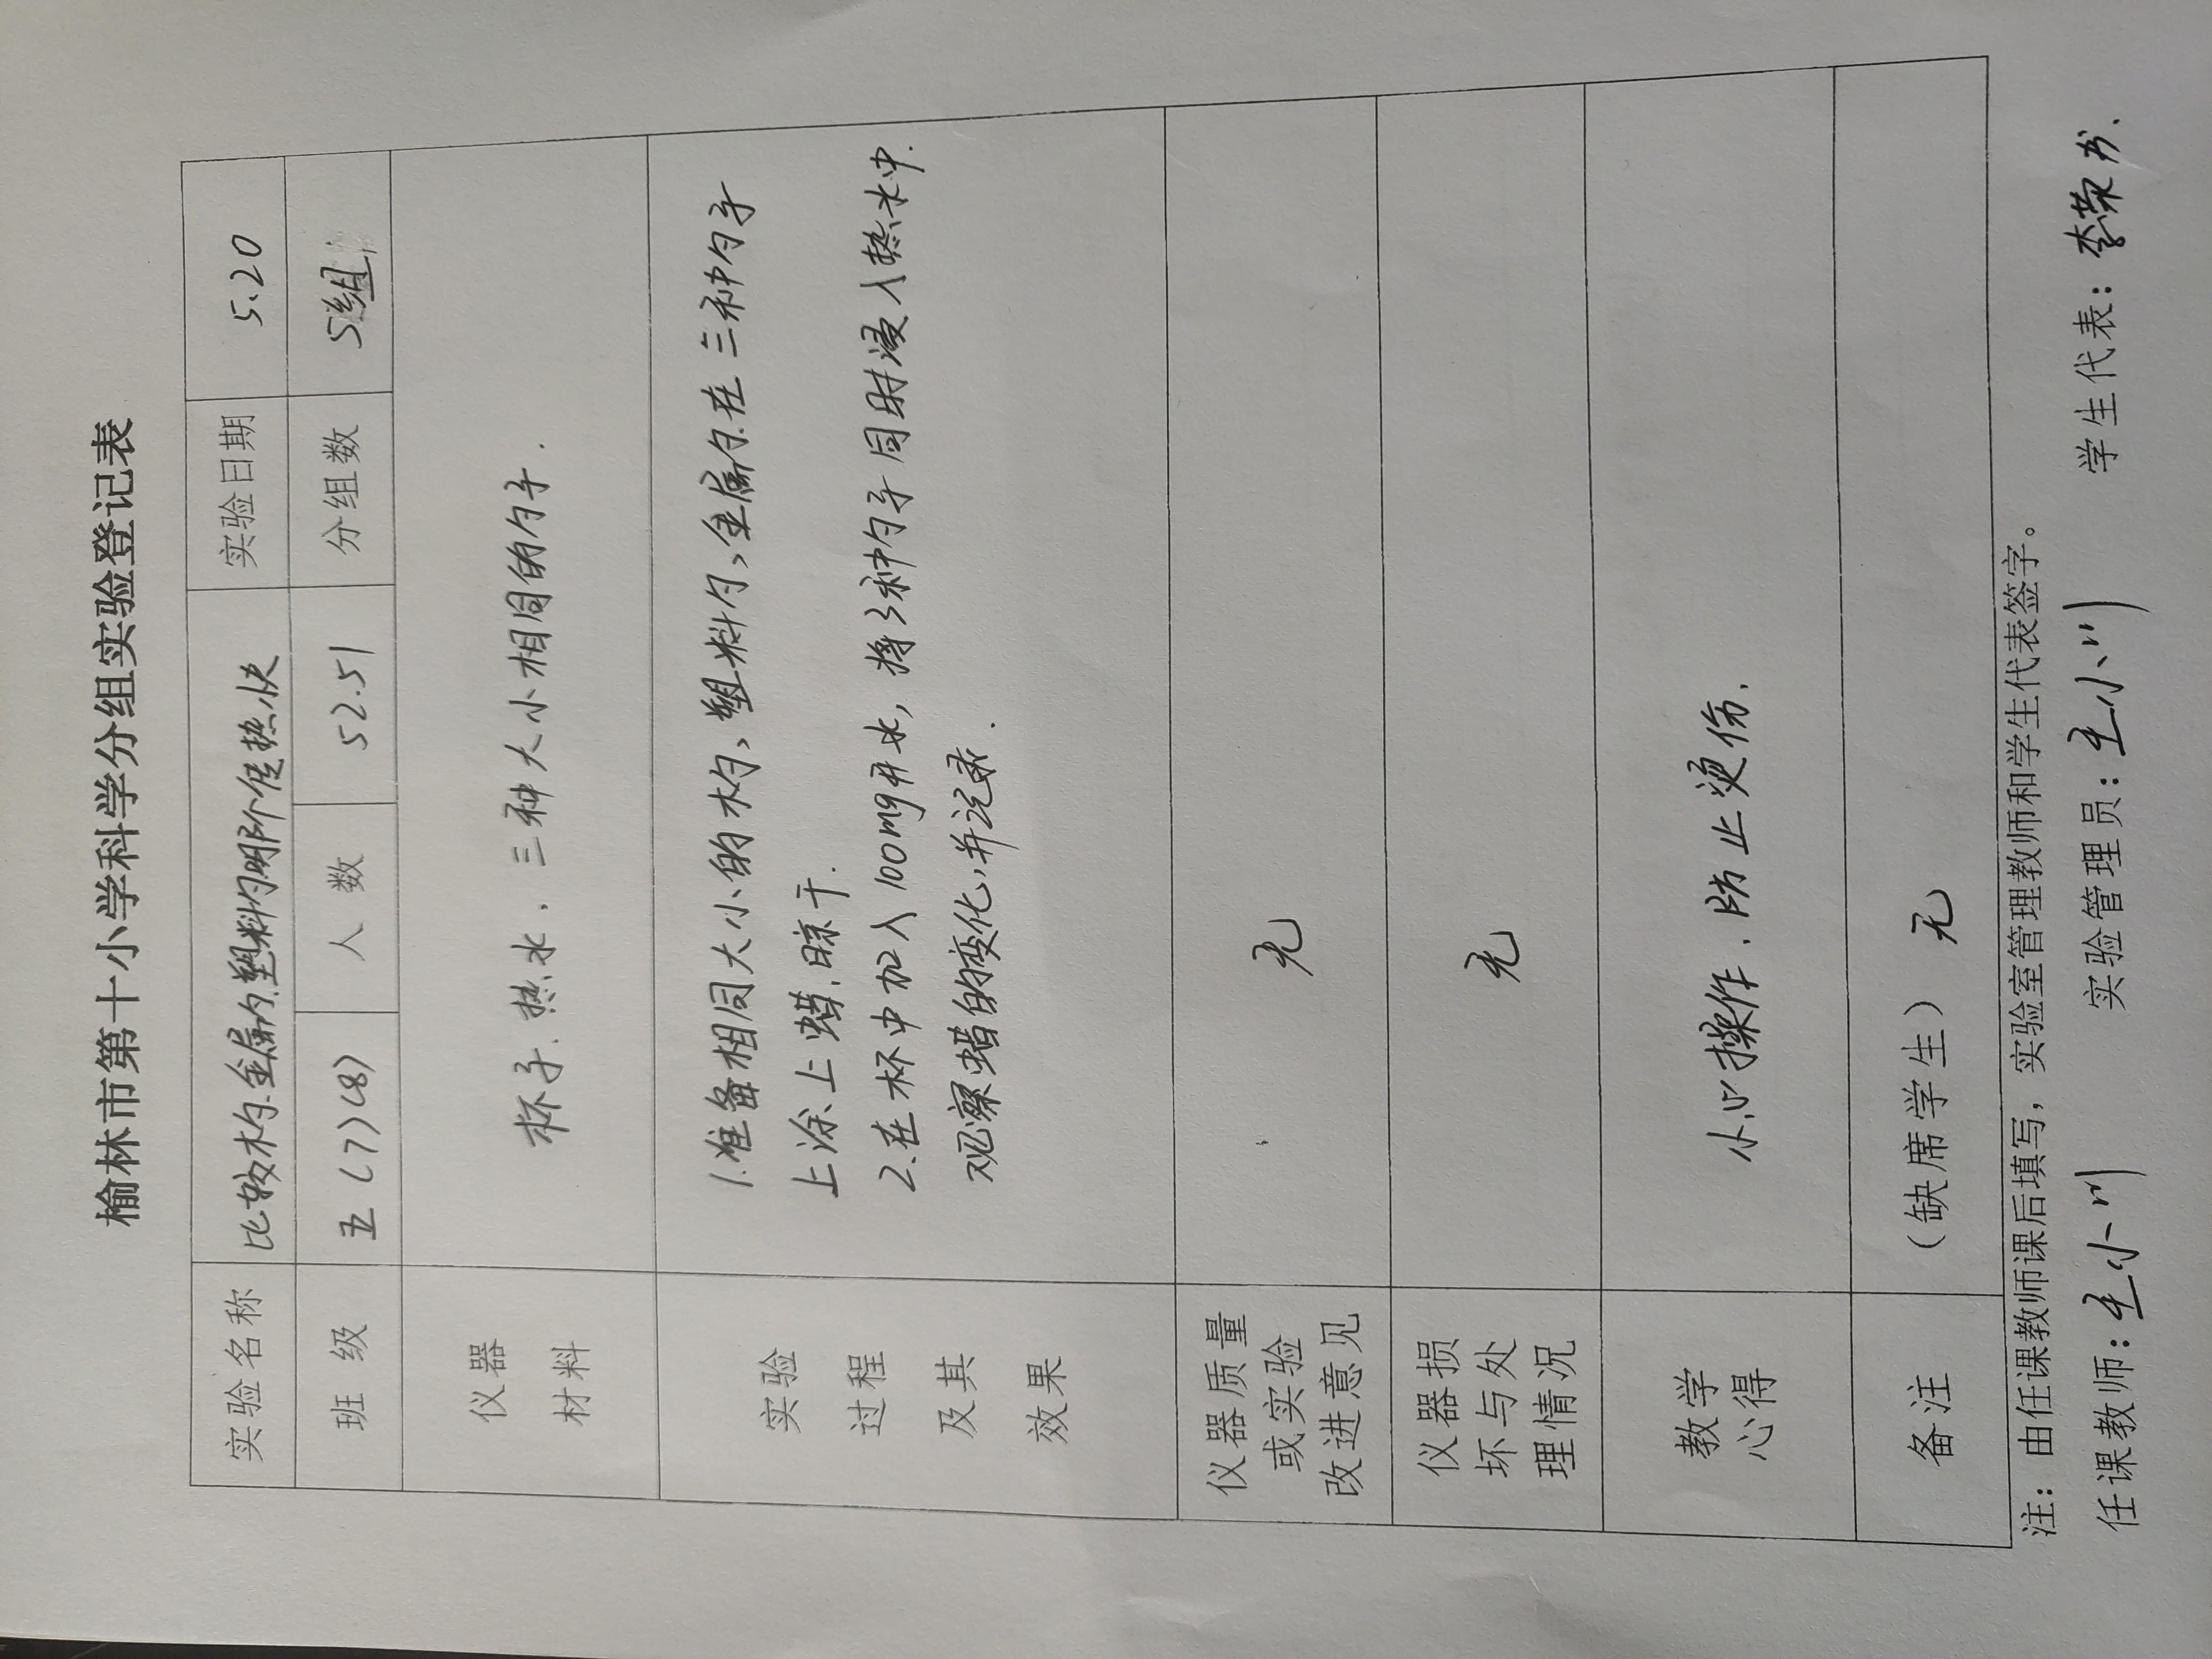 榆林市第十小学科学分组实验登记表
实验名称 比较木勺.金属勺.塑料勺哪个传热快 实验日期 5.20
班级 五(7)(8) 人数 52.51 分组数 5组
仪器
材料
杯子.热水.三种大小相同的勺子.
实验
过程
及其
效果
1.准备相同大小的木勺、塑料勺、金属勺.在三种勺子
上涂上蜡,晾干.
2.在杯中加入100mg开水,将3种勺子同时浸入热水中.
观察蜡的变化,并记录.
仪器质量
或实验
改进意见
无
仪器损
坏与处
理情况
无
教学
心得
小心操作.防止烫伤.
备注 (缺席学生) 无
注:由任课教师课后填写,实验室管理教师和学生代表签字。
任课教师:王小川 实验管理员:王小川 学生代表:李荣书.